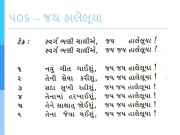 ૫૦૬ – જય હાલેલૂયા
ટેક: સ્વર્ગ ભણી ચાલીએ, જય જય હાલેલૂયા !
સ્વર્ગ ભણી ચાલીએ, જય જય હાલેલૂયા !
૧ નવું ગીત ગાઈશું, જય જય હાલેલૂયા !
૨ તેની સેવા કરીશું, જય જય હાલેલૂયા !
૩ સદા સુખી રહીશું, જય જય હાલેલૂયા !
૪ તેનામાં હરખાઈશું, જય જય હાલેલૂયા !
૫ તેને સાક્ષાત્ જોઈશું, જય જય હાલેલૂયા !
૬ તેના જેવા થઈશું, જય જય હાલેલૂયા !